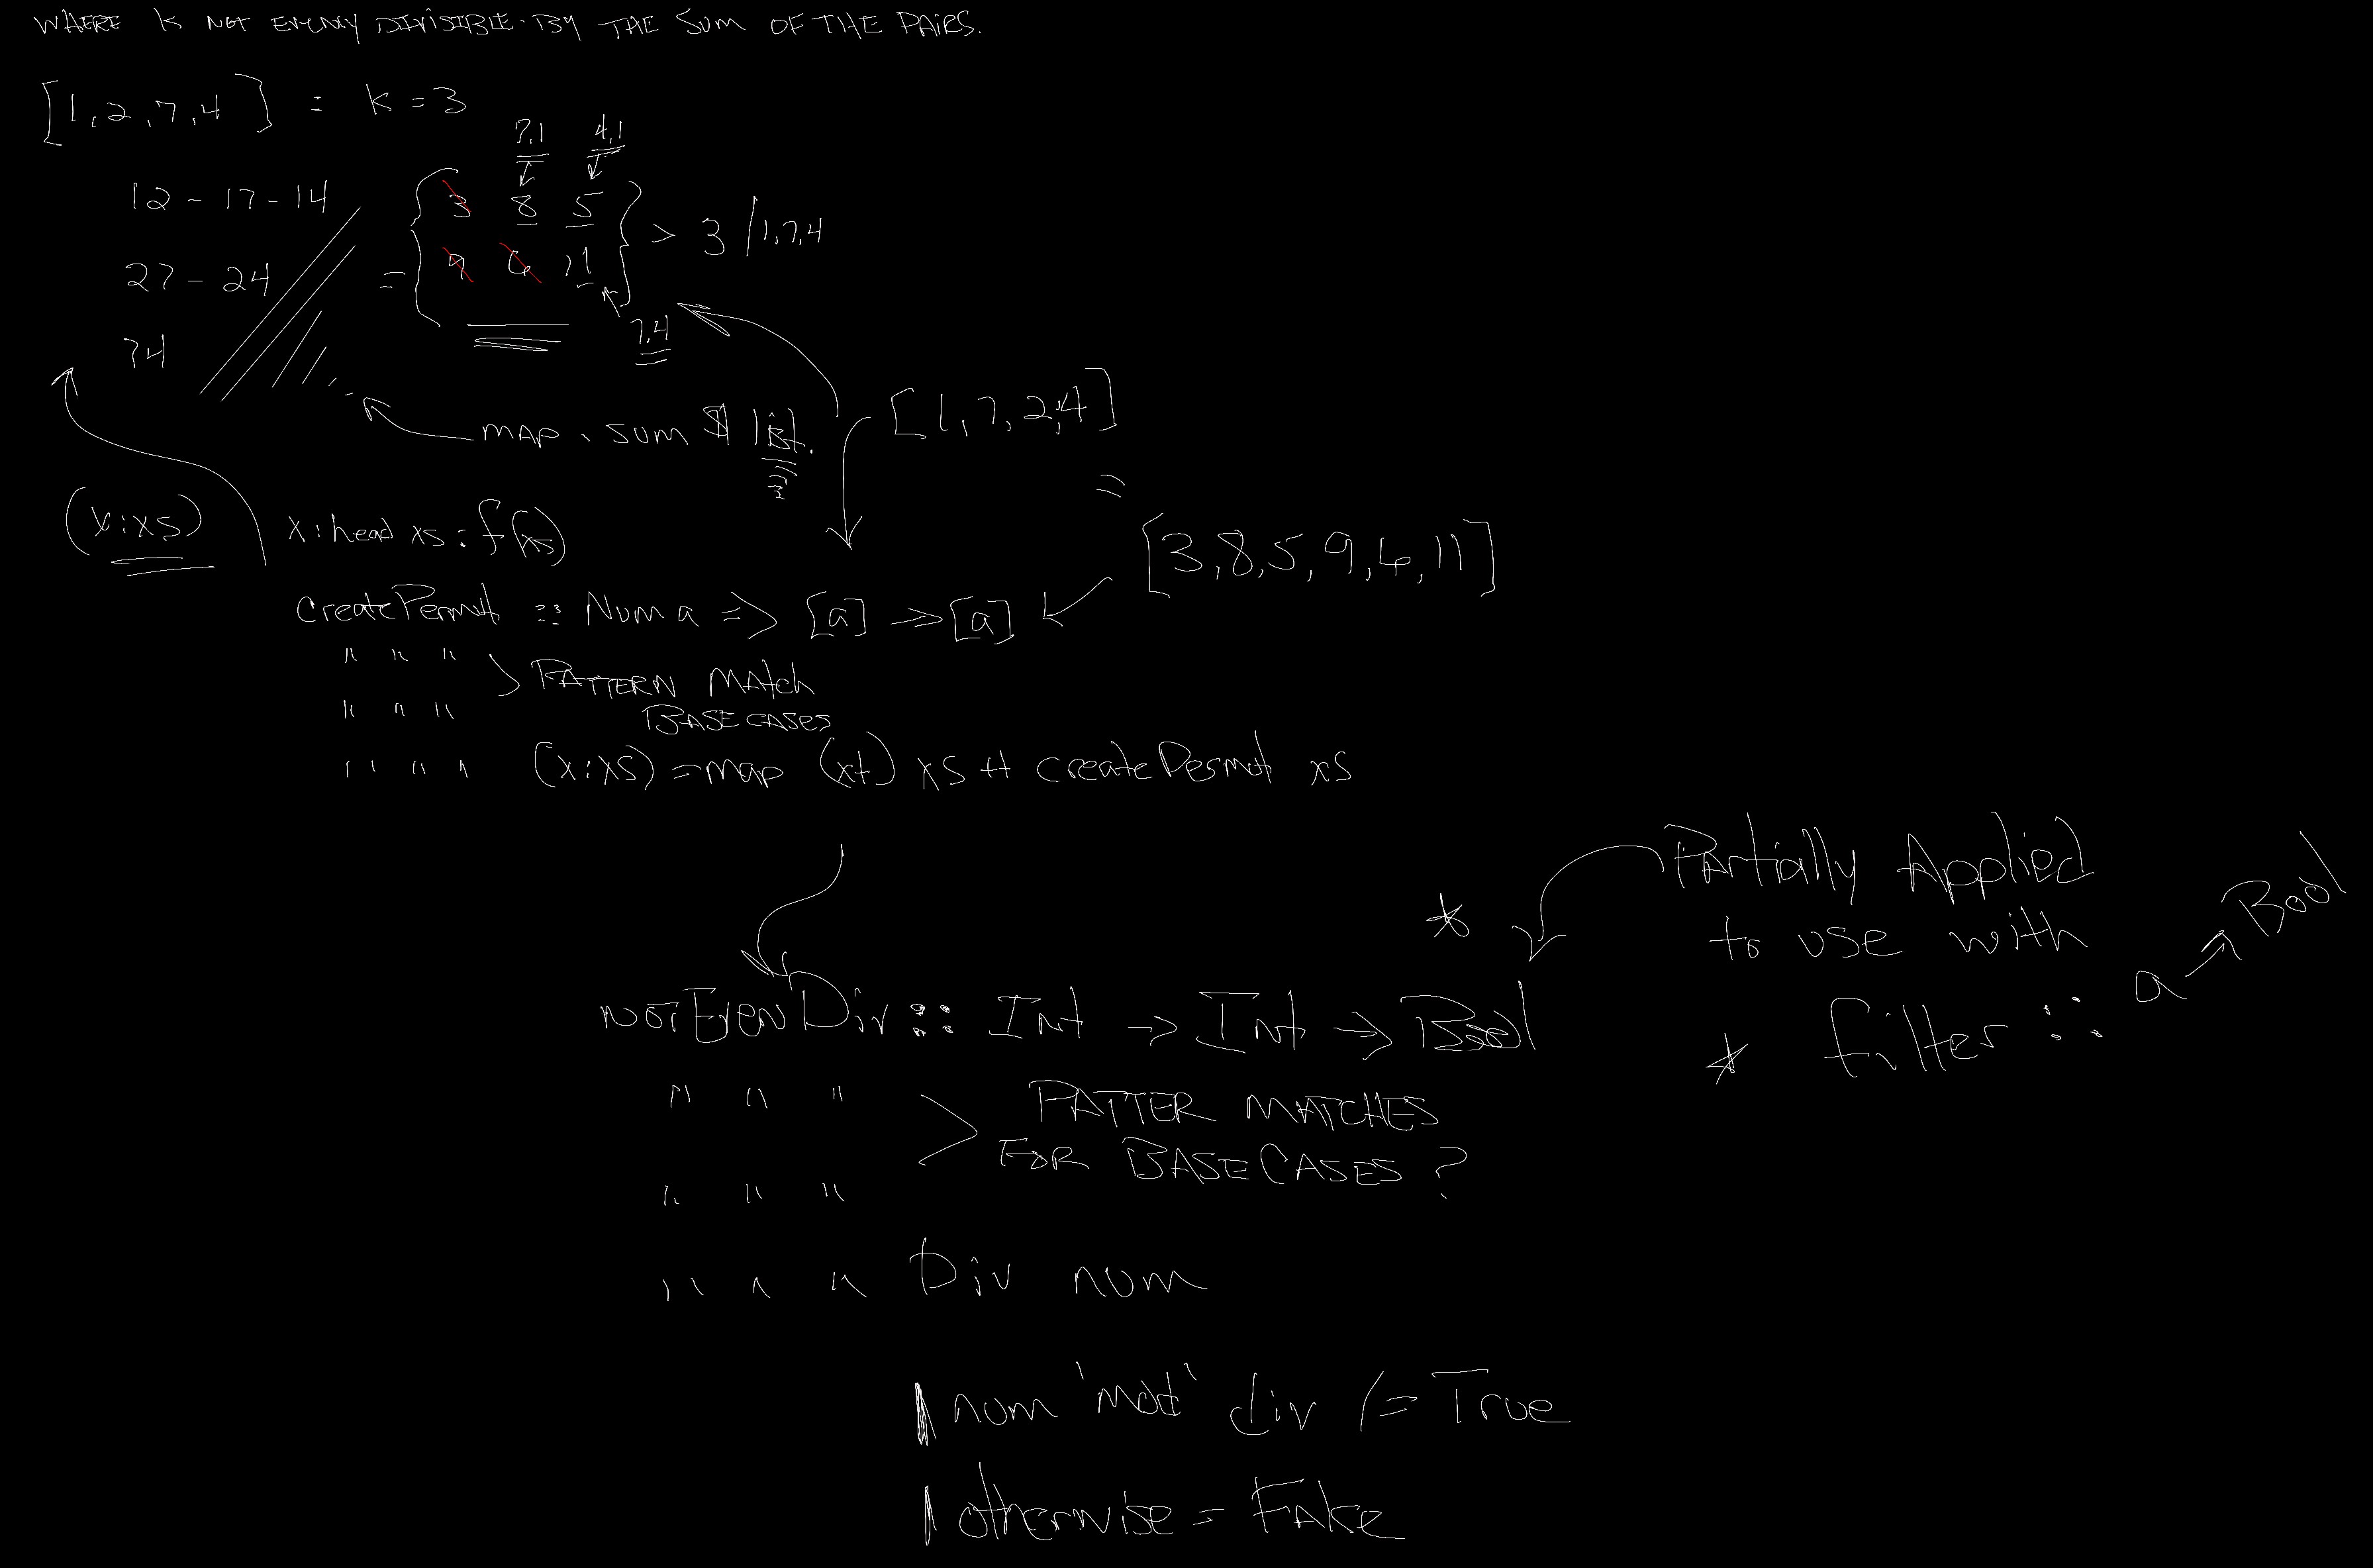 WHERE K NOT EVENLY DIVISIBLE BY THE SUM OF THE PAIRS.
[1,2,7,4] : K=3
7,1 4,1
12-17-14
3 8 5
> 3 / 1,7,4
27-24
=
9 6 11
7,4
74
map . sum $ list.
[1,7,2,4]
=
[3,8,5,9,6,11]
(x:xs) x:head xs:f(xs)
createPermut :: Num a => [a] -> [a]
" " " > PATTERN MATCH
" " " BASE CASES
" " " (x:xs) = map (x+) xs ++ createPermut xs
* Partially Applied
to use with
* filter :: a → Bool
NOTEVENDiv :: Int → Int → Bool
" " " > PATTER MATCHES
FOR BASE CASES?
" " "
" " " Div num
| num 'mod' div /= True
| otherwise = False